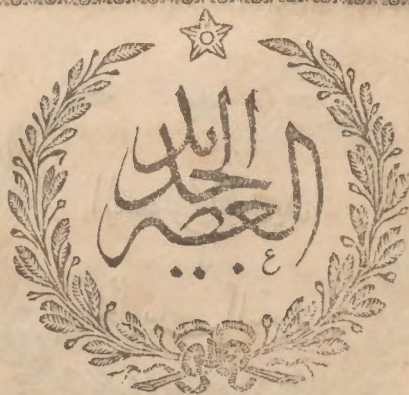 العصر الجديد
ع